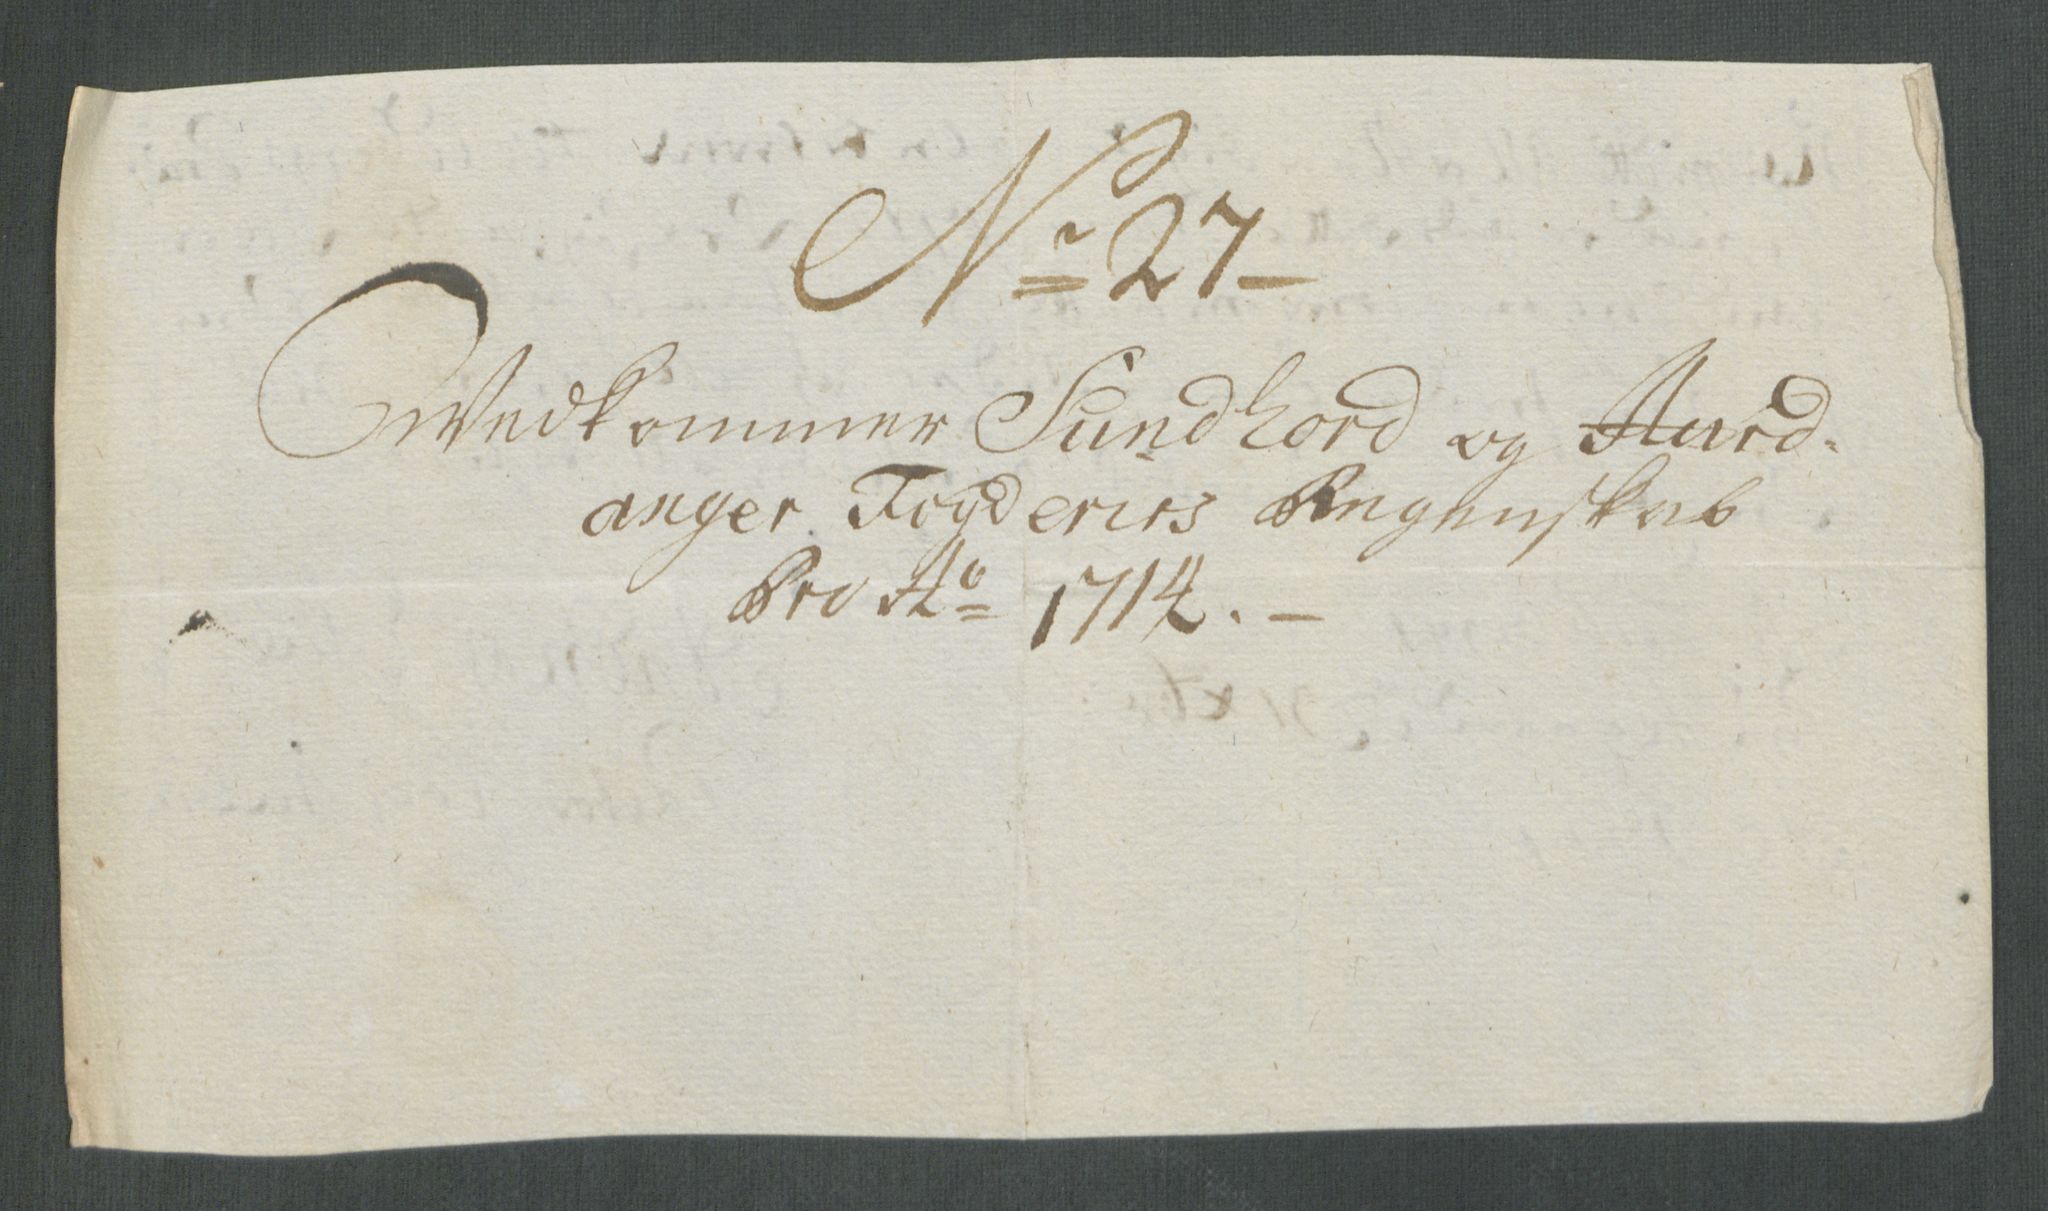 Nr 27
Vedkommer Sundhord og Hard-
anger Fogderies Regenskab
Pro Ao 1714.